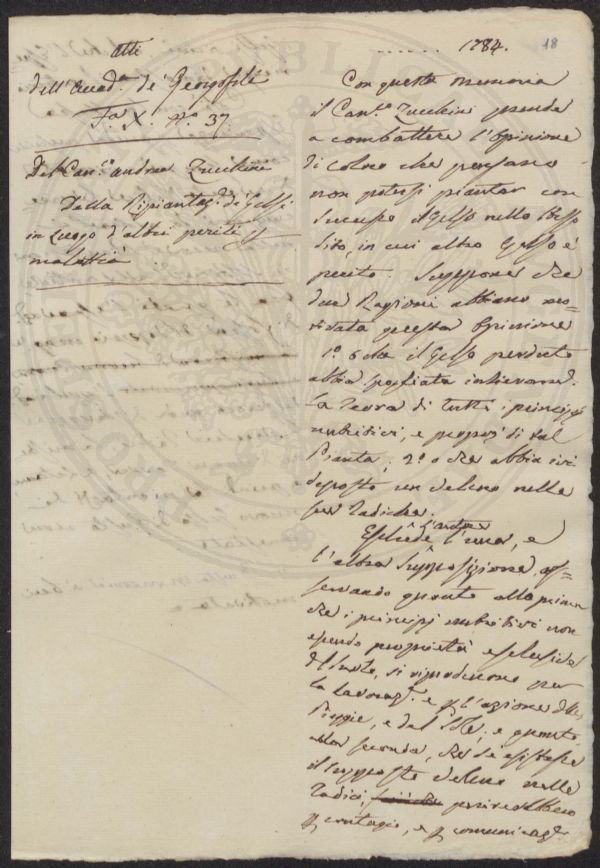 Atti
dell'Accad.a de' Georgofili
Fa. X. N.o 37.
Del Can.co Andrea Zucchini
Della Ripiantag.e di Gelsi
in luogo d'altri periti p
malattia
1784.
18
Con questa memoria
il Can.co Zucchini prende
a combattere l'opinione
di coloro che pensano
non potersi piantar con
successo il Gelso nello stesso
sito, in cui altro Gelso è
perito. Suppone che
due Ragioni abbiano
questa opinione
1.o o che il Gelso perduto
abbia spogliata intieram.e
la Terra di tutti i principj
nutritivi, e proprj di tal
Pianta; 2.o o che abbia ivi
deposto un veleno nelle
sue Radiche.
Esclude l'una, e
l'altra supposizione, os=
servando quanto alla prima
che i principj nutritivi non
essendo proprietà esclusiva
si riproducono per
la lavoraz.e e p l'azione delle
Piogge, e del Sole; e quanto
alla seconda, che se esistesse
il supposto veleno nelle
Radici, perirebbero
p contagio, e p comunicaz.e